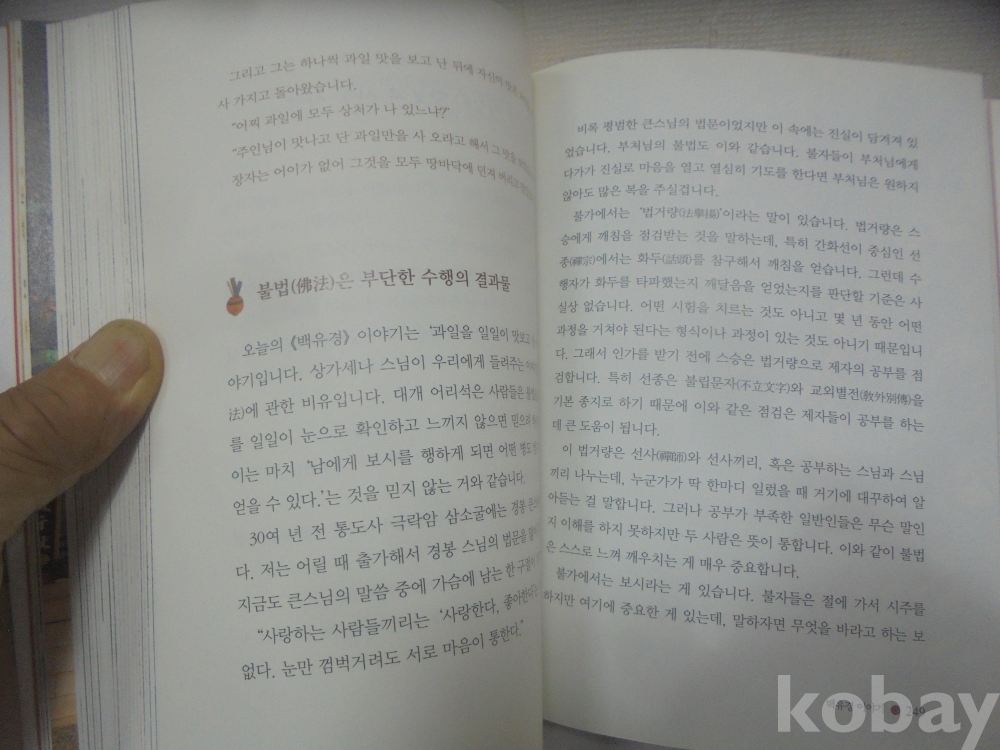 그리고 그는 하나씩 과일 맛을 보고 난 뒤에
사 가지고 돌아왔습니다.
“어찌 과일에 모두 상처가 나 있느냐?”
“주인님이 맛나고 단 과일만을 사 오라고 해서 그 맛을
장자는 어이가 없어 그것을 모두 땅바닥에 던져 버리고
불법(佛法)은 부단한 수행의 결과물
오늘의 《백유경》 이야기는 ‘과일을 일일이 맛보고
야기입니다. 상가세나 스님이 우리에게 들려주는
法)에 관한 비유입니다. 대개 어리석은 사람들은
를 일일이 눈으로 확인하고 느끼지 않으면 믿으려
이는 마치 ‘남에게 보시를 행하게 되면 어떤 병도
얻을 수 있다.’는 것을 믿지 않는 거와 같습니다.
30여 년 전 통도사 극락암 삼소굴에는 경봉
다. 저는 어릴 때 출가해서 경봉 스님의 법문을
지금도 큰스님의 말씀 중에 가슴에 남는 한 구절이
“사랑하는 사람들끼리는 ‘사랑한다, 좋아한다’
없다. 눈만 껌벅거려도 서로 마음이 통한다.”
비록 평범한 큰스님의 법문이었지만 이 속에는 진실이 담겨져 있
었습니다. 부처님의 불법도 이와 같습니다. 불자들이 부처님에게
다가가 진실로 마음을 열고 열심히 기도를 한다면 부처님은 원하지
않아도 많은 복을 주실겁니다.
불가에서는 ‘법거량(法擧揚)’이라는 말이 있습니다. 법거량은 스
승에게 깨침을 점검받는 것을 말하는데, 특히 간화선이 중심인 선
종(禪宗)에서는 화두(話頭)를 참구해서 깨침을 얻습니다. 그런데 수
행자가 화두를 타파했는지 깨달음을 얻었는지를 판단할 기준은 사
실상 없습니다. 어떤 시험을 치르는 것도 아니고 몇 년 동안 어떤
과정을 거쳐야 된다는 형식이나 과정이 있는 것도 아니기 때문입니
다. 그래서 인가를 받기 전에 스승은 법거량으로 제자의 공부를 점
검합니다. 특히 선종은 불립문자(不立文字)와 교외별전(敎外別傳)을
기본 종지로 하기 때문에 이와 같은 점검은 제자들이 공부를 하는
데 큰 도움이 됩니다.
이 법거량은 선사(禪師)와 선사끼리, 혹은 공부하는 스님과 스님
끼리 나누는데, 누군가가 딱 한마디 일렀을 때 거기에 대꾸하여 알
아듣는 걸 말합니다. 그러나 공부가 부족한 일반인들은 무슨 말인
지 이해를 하지 못하지만 두 사람은 뜻이 통합니다. 이와 같이 불법
은 스스로 느껴 깨우치는 게 매우 중요합니다.
불가에서는 보시라는 게 있습니다. 불자들은 절에 가서 시주를
하지만 여기에 중요한 게 있는데, 말하자면 무엇을 바라고 하는 보
백유경 이야기 249
kobay